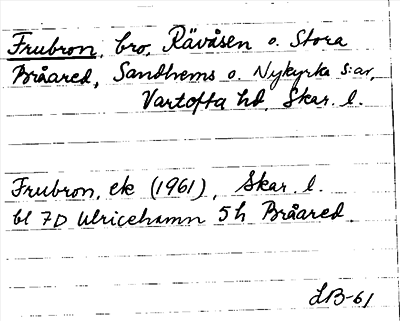 Frubron, bro, Rävåsen o. Stora
Bråared, Sandhems o. Nykyrka s:ar,
Vartofta hd, Skar. l.
Frubron, ek (1961), Skar. l.
bl 7D Ulricehamn 5h Bråared.
LB-61